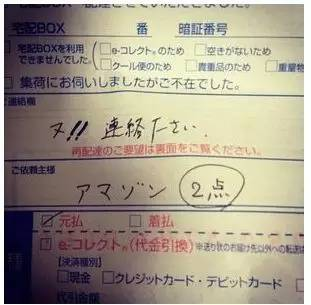 宅配BOX 番 暗証番号
宅配BOXを利用できませんでした。
□e-コレクト®のため □空きがないため
□クール便のため □貴重品のため □重量物
集荷にお伺いしましたがご不在でした。
連絡欄
ヌ!! 連絡下さい.
再配達のご要望は裏面をご覧ください。
ご依頼主様
アマゾン 2点
☑元払 □着払
e-コレクト®(代金引換) ※送り状のお届け先以外への転送は
【決済種別】
□現金 □クレジットカード・デビットカード
代引金額